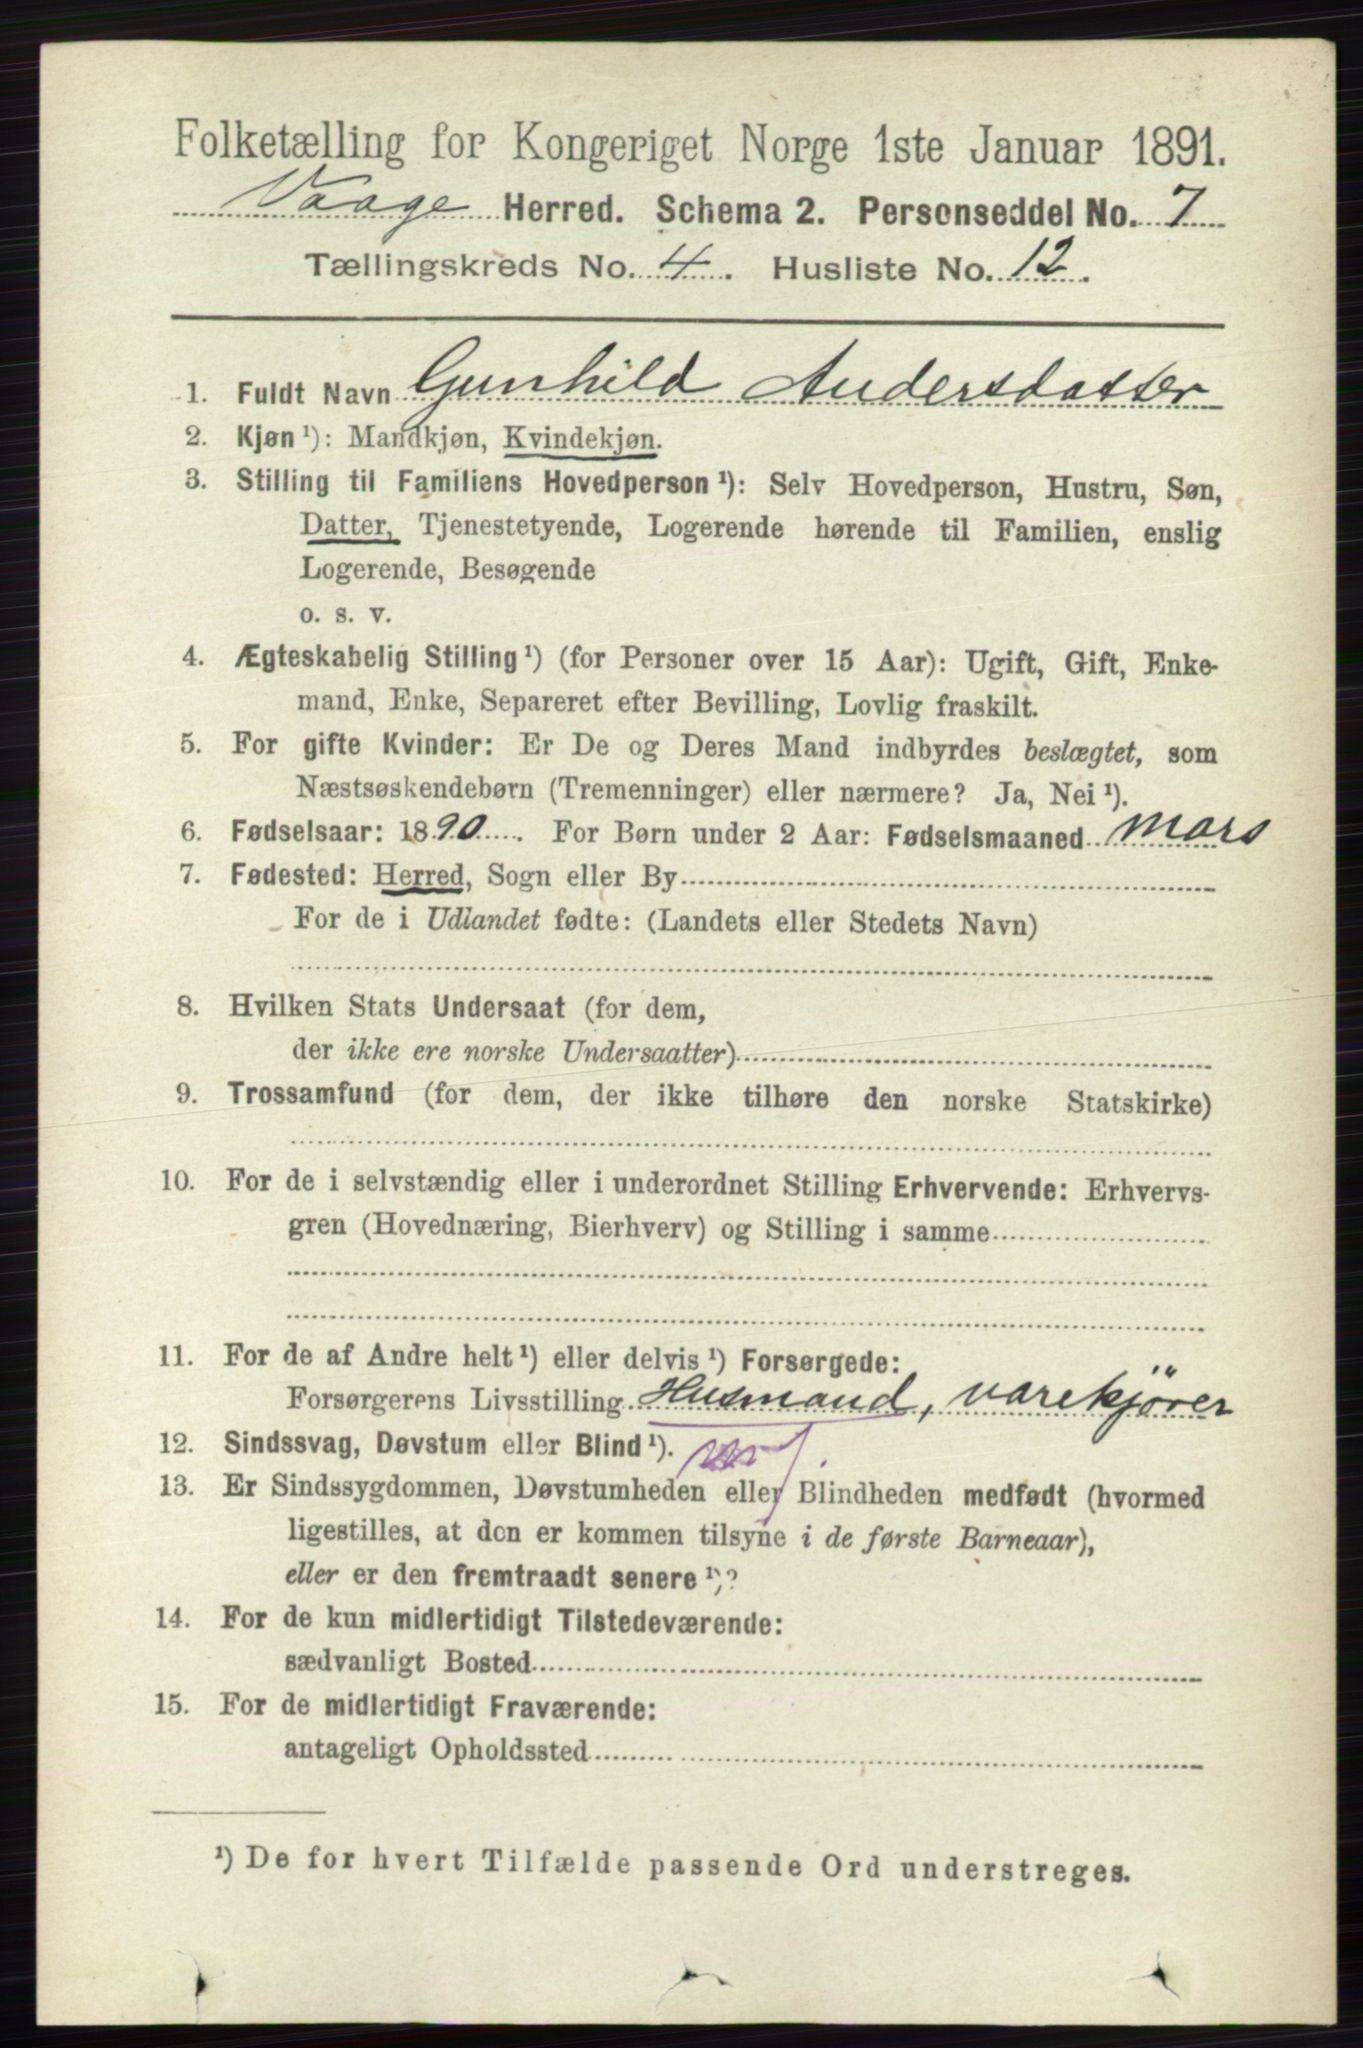 Folketælling for Kongeriget Norge 1ste Januar 1891.
Vaage Herred. Schema 2. Personseddel No. 7
Tællingskreds No. 4. Husliste No. 12.
1. Fuldt Navn Gunhild Andersdatter
2. Kjøn ¹): Mandkjøn, Kvindekjøn.
3. Stilling til Familiens Hovedperson ¹): Selv Hovedperson, Hustru, Søn,
Datter, Tjenestetyende, Logerende hørende til Familien, enslig
Logerende, Besøgende
o. s. v.
4. Ægteskabelig Stilling ¹) (for Personer over 15 Aar): Ugift, Gift, Enke-
mand, Enke, Separeret efter Bevilling, Lovlig fraskilt.
5. For gifte Kvinder: Er De og Deres Mand indbyrdes beslægtet, som
Næstsøskendebørn (Tremenninger) eller nærmere? Ja, Nei ¹).
6. Fødselsaar: 1890. For Børn under 2 Aar: Fødselsmaaned mars
7. Fødested: Herred, Sogn eller By
For de i Udlandet fødte: (Landets eller Stedets Navn)
8. Hvilken Stats Undersaat (for dem,
der ikke ere norske Undersaatter)
9. Trossamfund (for dem, der ikke tilhøre den norske Statskirke)
10. For de i selvstændig eller i underordnet Stilling Erhvervende: Erhvervs-
gren (Hovednæring, Bierhverv) og Stilling i samme
11. For de af Andre helt ¹) eller delvis ¹) Forsørgede:
Forsørgerens Livsstilling Husmand, varekjører
12. Sindssvag, Døvstum eller Blind ¹).
13. Er Sindssygdommen, Døvstumheden eller Blindheden medfødt (hvormed
ligestilles, at den er kommen tilsyne i de første Barneaar),
eller er den fremtraadt senere ¹)?
14. For de kun midlertidigt Tilstedeværende:
sædvanligt Bosted
15. For de midlertidigt Fraværende:
antageligt Opholdssted
¹) De for hvert Tilfælde passende Ord understreges.